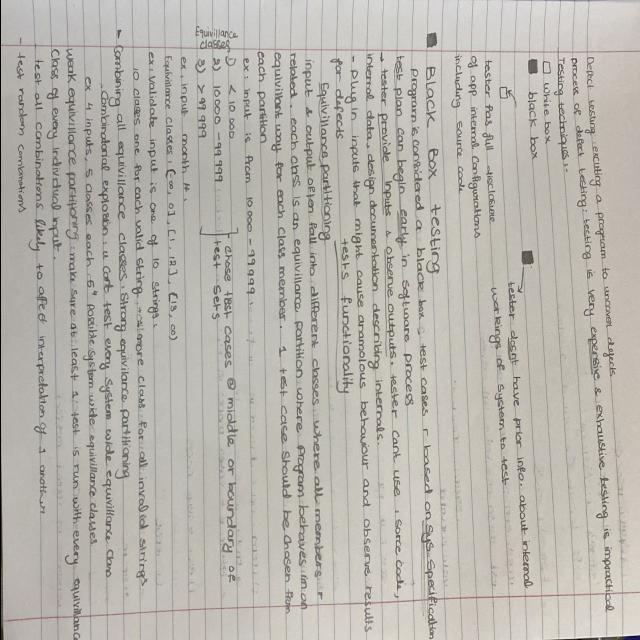 Defect testing: excuting a program to uncover defects
process of defect testing: testing is very expensive & exhaustive testing is impractical
Testing techniques:
□ white box
■ black box
□
tester has full disclosure
of app internal configurations
including source code
■
tester doesnt have prior info. about internal
workings of system to test
■ Black box testing
program is considered a black box & test cases r based on sys. specification
test plan can begin early in software process
→ tester provide inputs & observe outputs. tester cant use sorce code,
internal data, design documentation describing internals.
- plug in inputs that might cause anamolous behaviour and observe results
for defects
tests functionality
Equivillance partitioning
input & output often fall into different classes where all members r
related. each class is an equivillance partition where program behaves in an
equivillant way for each class member. 1 test case should be chosen from
each partition
ex: input is from 10 000 - 99 999.
Equivillance classes
1) < 10 000
2) 10 000 - 99 999
3) > 99 999
chose test cases @ middle or boundary of
test sets
ex. input month #.
Equivillance classes: [-∞, 0], [1, 12], [13, ∞)
ex: validate input is one of 10 strings:
10 classes one for each valid string, 1 more class for all invalid strings
- Combining all equivillance classes: Strong equivilance partitioning
Combinatorial explosion: u cant test every system wide equivillance class
ex 4 inputs, 5 classes each. 5⁴ possible system wide equivillance classes
weak equivillance partitioning: make sure at least 1 test is run with every equivillance
class of every individual input.
- test all combinations likely to affect interpretation of 1 another
- test random combinations